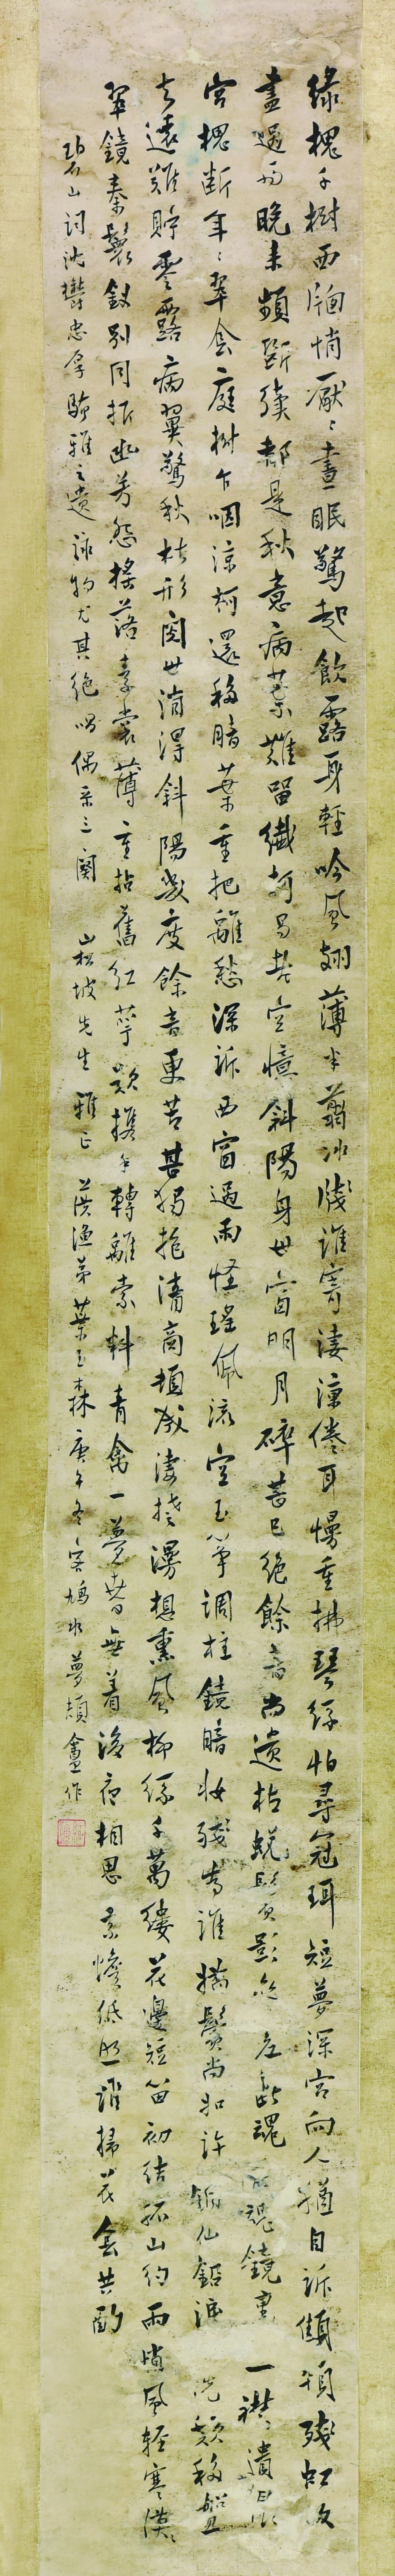 綠槐千樹西窗悄厭厭晝眠驚起飲露身輕吟風翅薄半翦冰牋誰寄淒涼倦耳慢重拂琴絲怕尋冠珥短夢深宮向人猶自訴顦顇殘虹收
盡過雨晚來頻斷續都是秋意病葉難留纖柯易老空憶斜陽身世窗明月碎甚已絕餘音尚遺枯蛻鬢影參差斷魂青鏡裏 一襟遺恨
宮槐斷年年翠舍庭樹乍咽涼柯還移暗葉重把離愁深訴西窗過雨怪瑤佩流空玉箏調柱鏡暗妝殘為誰嬌鬢尚如許銅仙鉛淚似洗歎移盤
去遠難貯零露病翼驚秋枯形閱世消得斜陽幾度餘音更苦甚獨抱清商頓成淒楚漫想熏風柳絲千萬縷 花邊短笛初結孤山約雨悄風輕寒漠漠
翠鏡秦鬟釵別同折幽芳怨搖落素裳薄重拈舊紅萼歎攜手轉離索料青禽一夢春無著後夜相思素蟾低照誰掃花陰共酌
碧山詞沈鬱忠厚騷雅之遺詠物尤其絕唱偶錄三闋 山松坡先生雅正 葓漁弟葉玉森庚午冬客鳩水夢頡盦作